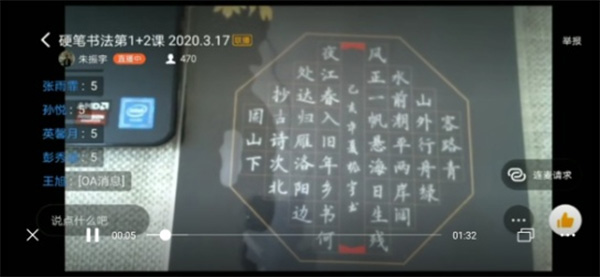 硬笔书法第1+2课 2020.3.17
举报
朱振宇
470
张雨霏: 5
孙悦: 5
英馨月: 5
王旭: [OA消息]
intel
客路青
山外行舟绿
水前潮平两岸阔
风正一帆悬海日生残
夜江春入旧年乡书何
处达归雁洛阳边
抄古诗次北
固山下
连麦请求
说点什么吧
00:05
01:32